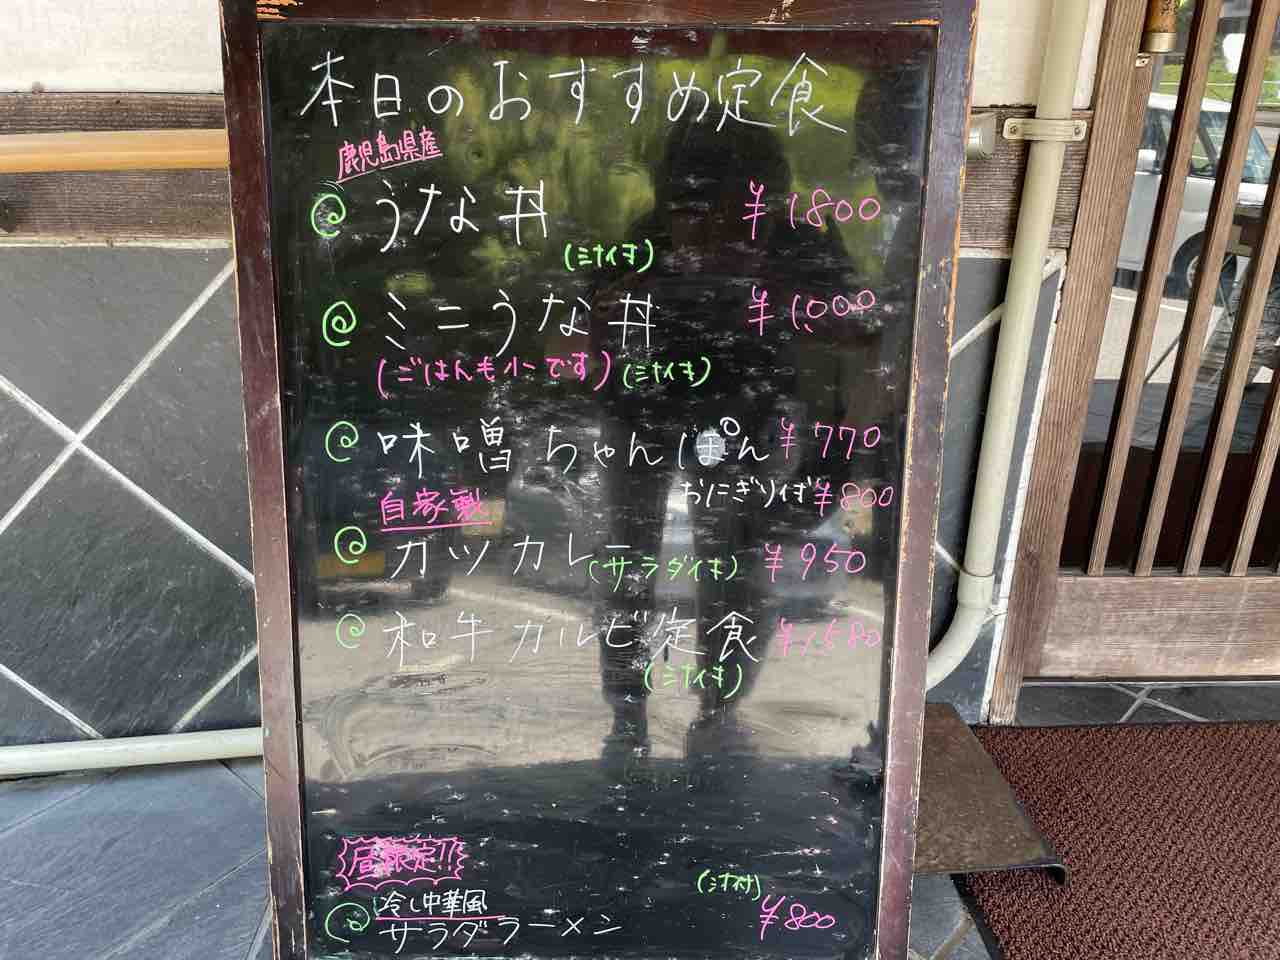 本日のおすすめ定食
鹿児島県産
うな丼 ¥1800
(ミナイキ)
ミニうな丼 ¥1,000
(ごはんも小です) (ミナイキ)
味噌ちゃんぽん ¥770
おにぎり付 ¥800
自家製
カツカレー (サラダイキ) ¥950
和牛カルビ定食 ¥1,580
(ミナイキ)
昼限定!!
冷し中華風
サラダラーメン ¥800